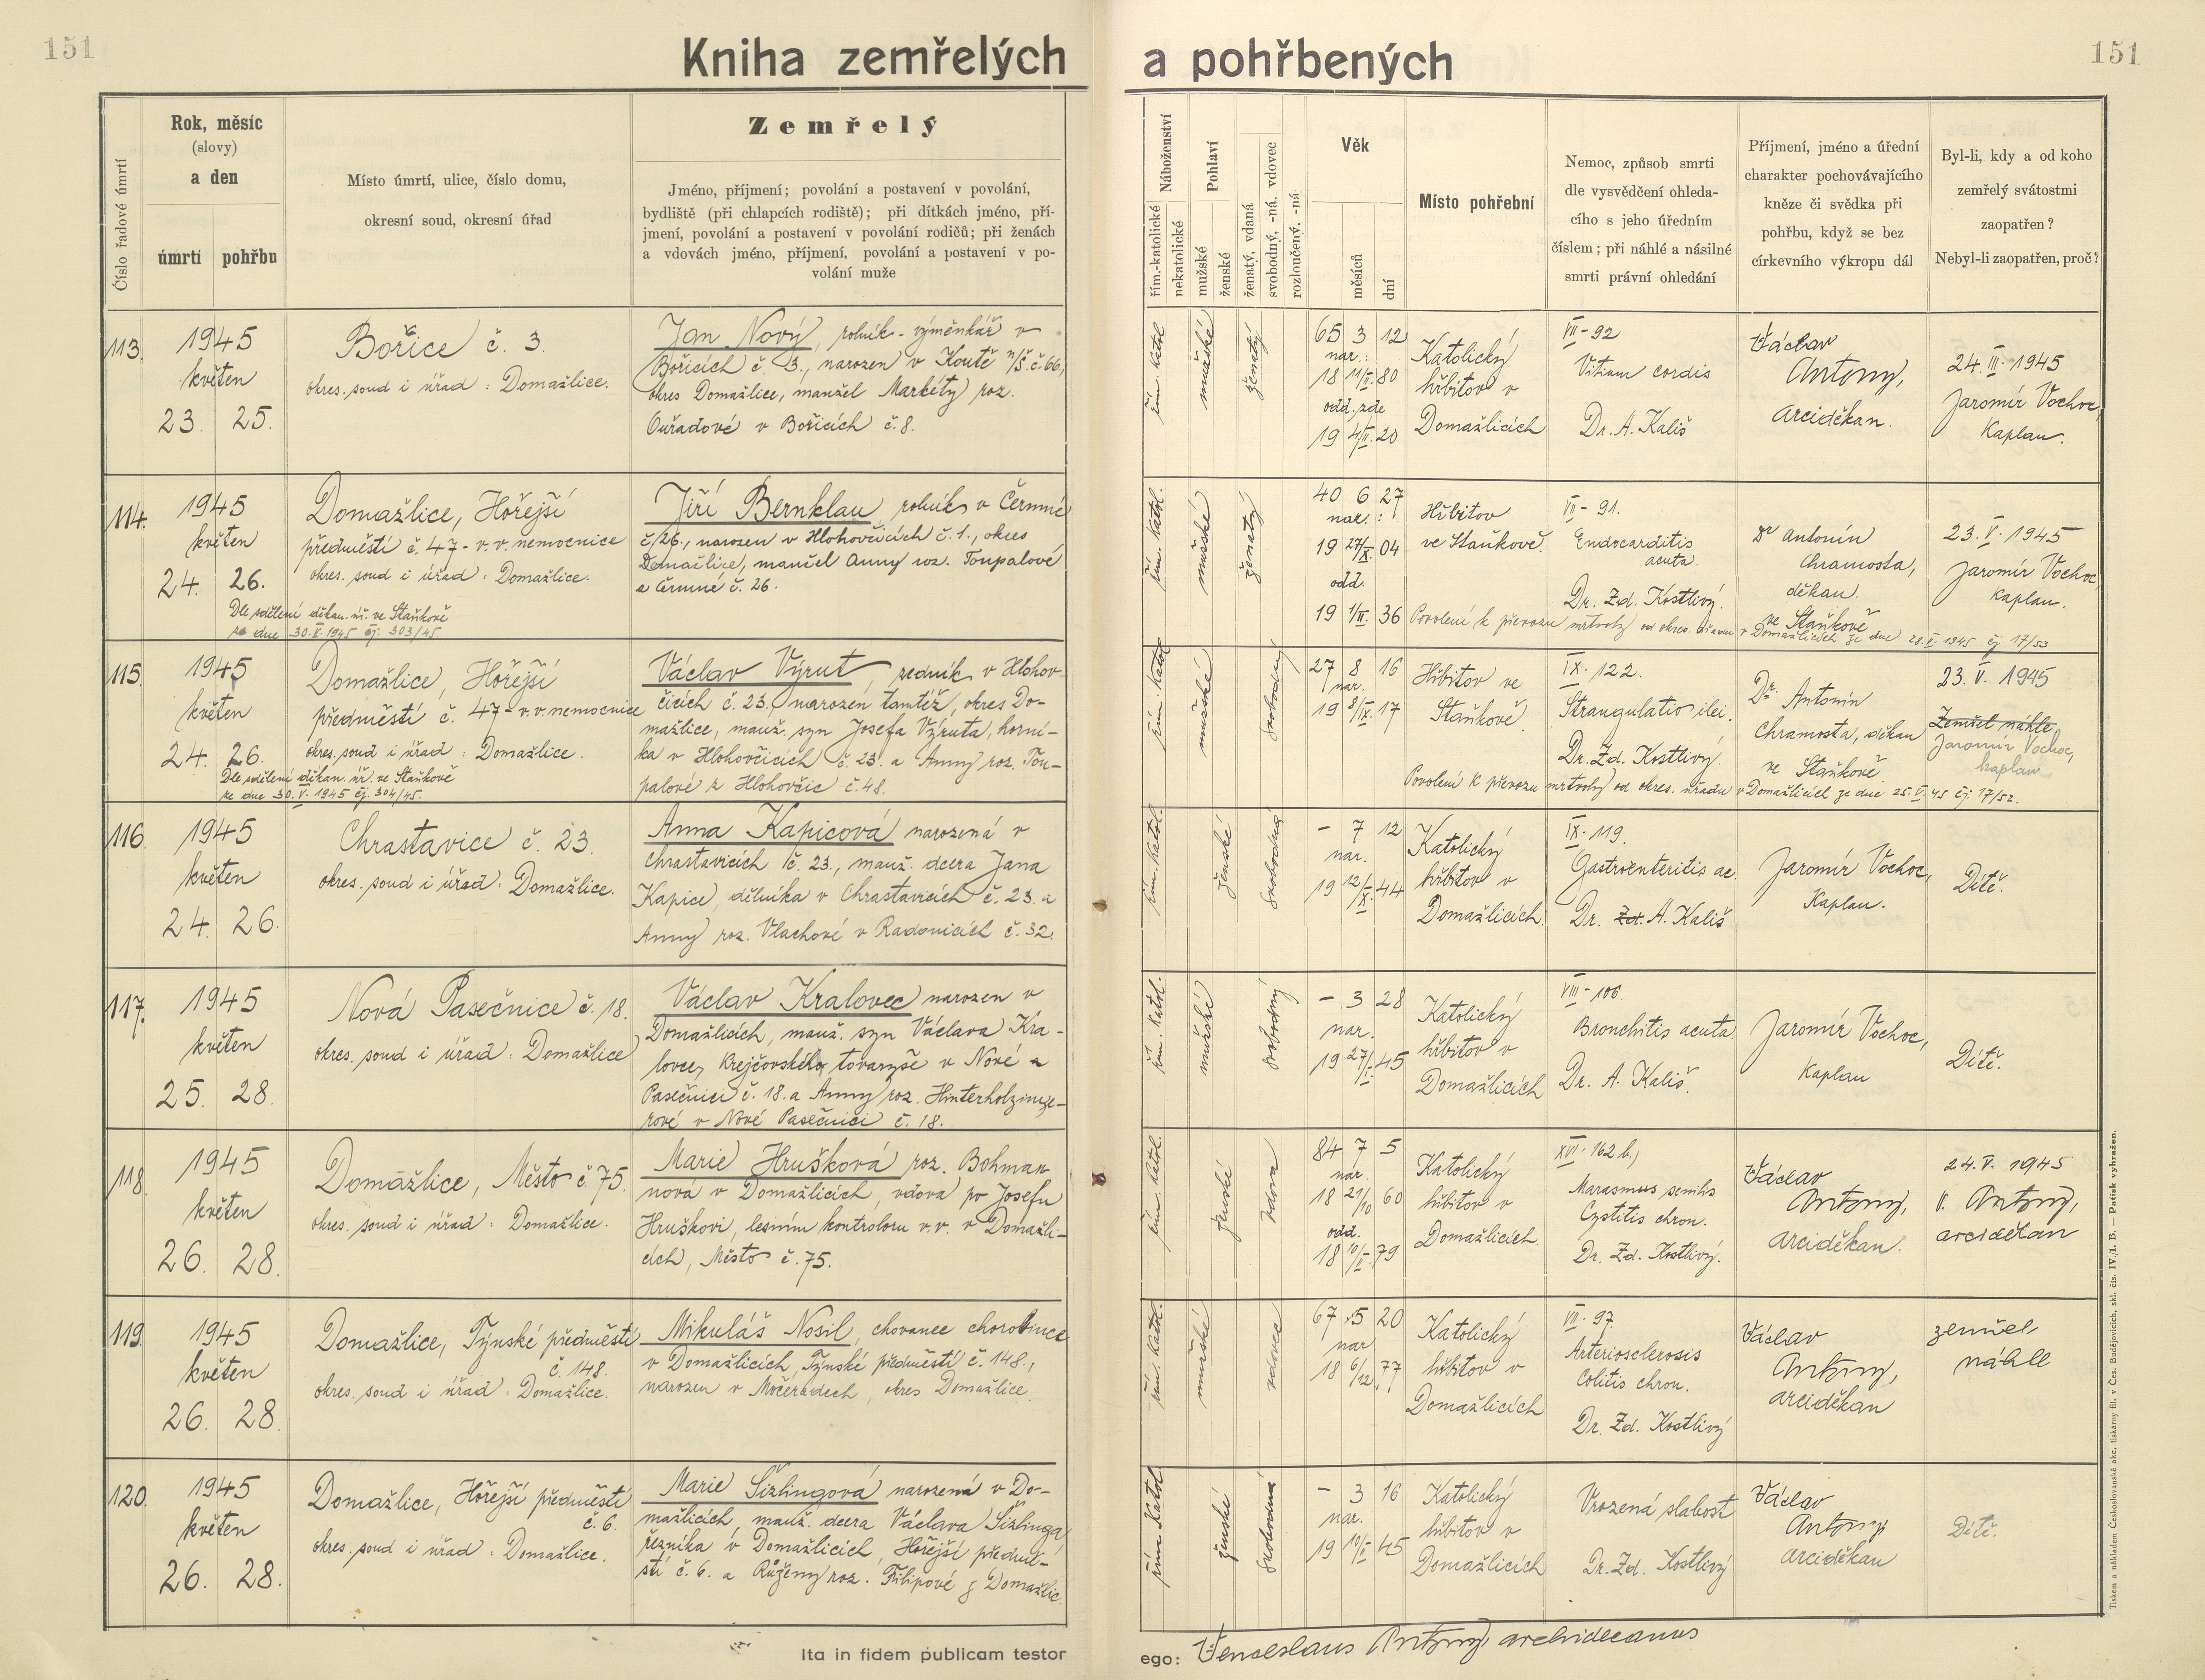 151
Kniha zemřelých
a pohřbených
151
Číslo řadové úmrtí
Rok, měsíc
(slovy)
a den
úmrtí
pohřbu
Místo úmrtí, ulice, číslo domu,
okresní soud, okresní úřad
Zemřelý
Jméno, příjmení; povolání a postavení v povolání,
bydliště (při chlapcích rodiště); při dítkách jméno, pří-
jmení, povolání a postavení v povolání rodičů; při ženách
a vdovách jméno, příjmení, povolání a postavení v po-
volání muže
Náboženství
řím.-katolické
nekatolické
Pohlaví
mužské
ženské
ženatý, vdaná
svobodný, -ná, vdovec
rozloučený, -ná
Věk
měsíců
dní
Místo pohřební
Nemoc, způsob smrti
dle vysvědčení ohleda-
cího s jeho úředním
číslem; při náhlé a násilné
smrti právní ohledání
Příjmení, jméno a úřední
charakter pochovávajícího
kněze či svědka při
pohřbu, když se bez
církevního výkropu dál
Byl-li, kdy a od koho
zemřelý svátostmi
zaopatřen?
Nebyl-li zaopatřen, proč?
113.
1945
květen
23. 25.
Bořice č. 3.
okres. soud i úřad: Domažlice.
Jan Nový, rolník - výměnkář v
Bořicích č. 3., narozen v Koutě n/Š. č. 66,
okres Domažlice, manžel Markéty roz.
Ouřadové v Bořicích č. 8.
řím. katol.
mužské
ženatý
65 3 12
nar.:
18 11/II. 80
odd. zde
19 4/II. 20
Katolický
hřbitov v
Domažlicích
VII - 92
Vitium cordis
Dr. A. Kališ
Václav
Antony,
arciděkan.
24. III. 1945
Jaromír Vochoc,
Kaplan.
114.
1945
květen
24. 26.
Domažlice, Hořejší
předměstí č. 47 - v. v. nemocnice
okres. soud i úřad: Domažlice.
Dle sdělení děkan. úř. ve Staňkově
ze dne 30. V. 1945 čj. 303/45.
Jiří Bernklau, rolník v Čermné
č. 26., narozen v Hlohovčicích č. 1., okres
Domažlice, manžel Anny roz. Toupalové
z Čermné č. 26.
řím. katol.
mužské
ženatý
40 6 27
nar.:
19 27/X. 04
odd.
19 1/II. 36
Hřbitov
ve Staňkově.
VII - 91.
Endocarditis
acuta.
Dr. Zd. Kostlivý.
Dr Antonín
Chramosta,
děkan.
ve Staňkově
23. V. 1945
Jaromír Vochoc
kaplan.
Povolení k převozu mrtvoly od okres. úřadu v Domažlicích ze dne 28. V. 1945 čj. 17/53
115.
1945
květen
24. 26.
Domažlice, Hořejší
předměstí č. 47 - v. v. nemocnice
okres. soud i úřad: Domažlice.
Dle sdělení děkan. úř. ve Staňkově
ze dne 30. V. 1945 čj. 304/45.
Václav Výrut, zedník v Hlohov-
čicích č. 23., narozen tamtéž, okres Do-
mažlice, manž. syn Josefa Výruta, horní-
ka v Hlohovčicích č. 23. a Anny roz. Tou-
palové z Hlohovčic č. 48.
řím. katol.
mužské
svobodný
27 8 16
nar.
19 8/IX. 17
Hřbitov ve
Staňkově.
IX. 122.
Strangulatio ilei.
Dr. Zd. Kostlivý.
Dr. Antonín
Chramosta, děkan
ve Staňkově.
23. V. 1945
Zemřel náhle
Jaromír Vochoc,
kaplan
Povolení k převozu mrtvoly od okres. úřadu v Domažlicích ze dne 25. V. 45 čj. 17/52.
116.
1945
květen
24. 26.
Chrastavice č. 23.
okres. soud i úřad: Domažlice.
Anna Kapicová narozená v
Chrastavicích č. 23., manž. dcera Jana
Kapice, dělníka v Chrastavicích č. 23. a
Anny roz. Vlachové v Radonicích č. 32.
řím. katol.
ženské
svobodná
- 7 12
nar.
19 12/X. 44
Katolický
hřbitov v
Domažlicích.
IX. 119.
Gastroenteritis ac.
Dr. Zd. A. Kališ
Jaromír Vochoc,
Kaplan.
Dítě.
117.
1945
květen
25. 28.
Nová Pasečnice č. 18.
okres. soud i úřad: Domažlice
Václav Kralovec narozen v
Domažlicích, manž. syn Václava Kra-
lovce, krejčovského tovaryše v Nové
Pasečnici č. 18. a Anny roz. Hinterholzinge-
rové v Nové Pasečnici č. 18.
řím. katol.
mužské
svobodný
- 3 28
nar.
19 27/I. 45
Katolický
hřbitov v
Domažlicích
VIII - 106.
Bronchitis acuta
Dr. A. Kališ.
Jaromír Vochoc,
Kaplan
Dítě.
118.
1945
květen
26. 28.
Domažlice, Město č. 75.
okres. soud i úřad: Domažlice.
Marie Hrušková roz. Bohman
nová v Domažlicích, vdova po Josefu
Hruškovi, lesním kontroloru v. v. v Domažli-
cích, Město č. 75.
řím. katol.
ženské
vdova
84 7 5
nar.
18 21/10 60
odd.
18 10/II. 79
Katolický
hřbitov v
Domažlicích.
XVII. 162 b.)
Marasmus senilis
Cystitis chron.
Dr. Zd. Kostlivý.
Václav
Antony,
arciděkan.
24. V. 1945
V. Antony,
arciděkan
119.
1945
květen
26. 28.
Domažlice, Týnské předměstí
č. 148.
okres. soud i úřad: Domažlice.
Mikuláš Nosil, chovanec chorobince
v Domažlicích, Týnské předměstí č. 148.,
narozen v Močeradech, okres Domažlice.
řím. katol.
mužské
vdovec
67 5 20
nar.
18 6/12. 77
Katolický
hřbitov v
Domažlicích
VII. 97.
Arteriosclerosis
Colitis chron.
Dr. Zd. Kostlivý
Václav
Antony,
arciděkan
zemřel
náhle
120.
1945
květen
26. 28.
Domažlice, Hořejší předměstí
č. 6.
okres. soud i úřad: Domažlice.
Marie Šizlingová narozená v Do-
mažlicích, manž. dcera Václava Šizlinga,
řezníka v Domažlicích, Hořejší předmě-
stí č. 6. a Růženy roz. Filipové z Domažlic.
řím. katol.
ženské
svobodná
- 3 16
nar.
19 10/II. 45
Katolický
hřbitov v
Domažlicích
Vrozená slabost
Dr. Zd. Kostlivý
Václav
Antony
arciděkan
Dítě.
Ita in fidem publicam testor
ego: Venceslaus Antony, archidecanus
Tiskem a nákladem Československé akc. tiskárny fil. v Čes. Budějovicích, skl. čís. IV./1. B. — Patisk vyhrazen.